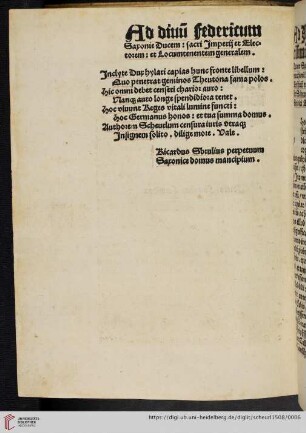 Ad diuũ federicum
Saxonie Ducem: sacri Imperij et Elec-
torem: et Locumtenentem generalem.
Inclyte Dux hylari capias hunc fronte libellum:
Quo penetrat geminos Theutona fama polos.
Hic omni debet censeri charior auro:
Namq; auro longe spendidiora tenet.
Hoc viuunt Reges vitali lumine functi:
Hoc Germanus honos: et tua summa domus.
Authorem Scheurlum censura iuris vtraq;
Insignem solito, dilige more. Vale.
Ricardus Sbrulius perpetuum
Saxonice domus mancipium.
UNIVERSITÄTS-
BIBLIOTHEK
HEIDELBERG
https://digi.ub.uni-heidelberg.de/diglit/scheurl1508/0006